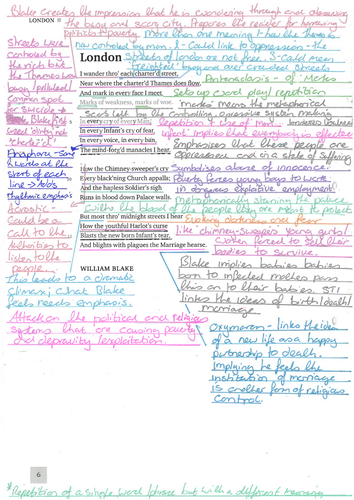 Blake Creates the impression that he is wandering through and observing
LONDON
the busy and scary city. Prepares the reader for horrifying
sights & poverty.
more than one meaning + how the Thames is
now controlled by men. 1 - Could link to oppression - the
Streets of London are not free. 2 - Could mean
"freighted" busy and are crowded streets
London
I wander thro' each charter'd street,
Near where the charter'd Thames does flow,
And mark in every face I meet
Marks of weakness, marks of woe.
In every cry of every Man,
In every Infant's cry of fear,
In every voice, in every ban,
The mind-forg'd manacles I hear.
How the Chimney-sweeper's cry
Every black'ning Church appalls;
And the hapless Soldier's sigh
Runs in blood down Palace walls.
But most thro' midnight streets I hear
How the youthful Harlot's curse
Blasts the new born Infant's tear,
And blights with plagues the Marriage hearse.
WILLIAM BLAKE
Streets were
controlled by
the rich but
the Thames was
busy/polluted
Common spot
for Suicide
Blake first
used 'dirty' not
'charter'd'
Anaphora - Same
words at the
start of each
line → adds
rhythmic emphasis
Acrostic -
Could be a
Call to the
Authorities to
listen to the
people.
This leads to a climatic
Climax; what Blake
feels needs emphasis.
Attack on the political and religious
systems that are causing poverty
and depravity/exploitation.
Antanaclasis - of 'Marks'
Sets up word play/repetition
'marks' means the metaphorical
Scars left by the controlling oppressive system making
Repetition & use of 'man'
'infant' implies that everybody is affected
Emphasises that these people are
oppressed and in a state of suffering
Symbolises abuse of innocence.
Poverty forces young boys to work
in dangerous exploitive employment
metaphorically staining the palace
with the blood of the people they are meant to protect
Evoking darkness and fear
like chimney-sweepers young girls/
women forced to sell their
bodies to survive.
Blake implies babies
born to infected mothers pass
this on to their babies. STI
links the ideas of birth/death/
marriage
Oxymoron - links the idea
of a new life as a happy
partnership to death.
Implying he feels the
institution of marriage
is another form of religious
control.
6
*Repetition of a single word/phrase but with a different meaning